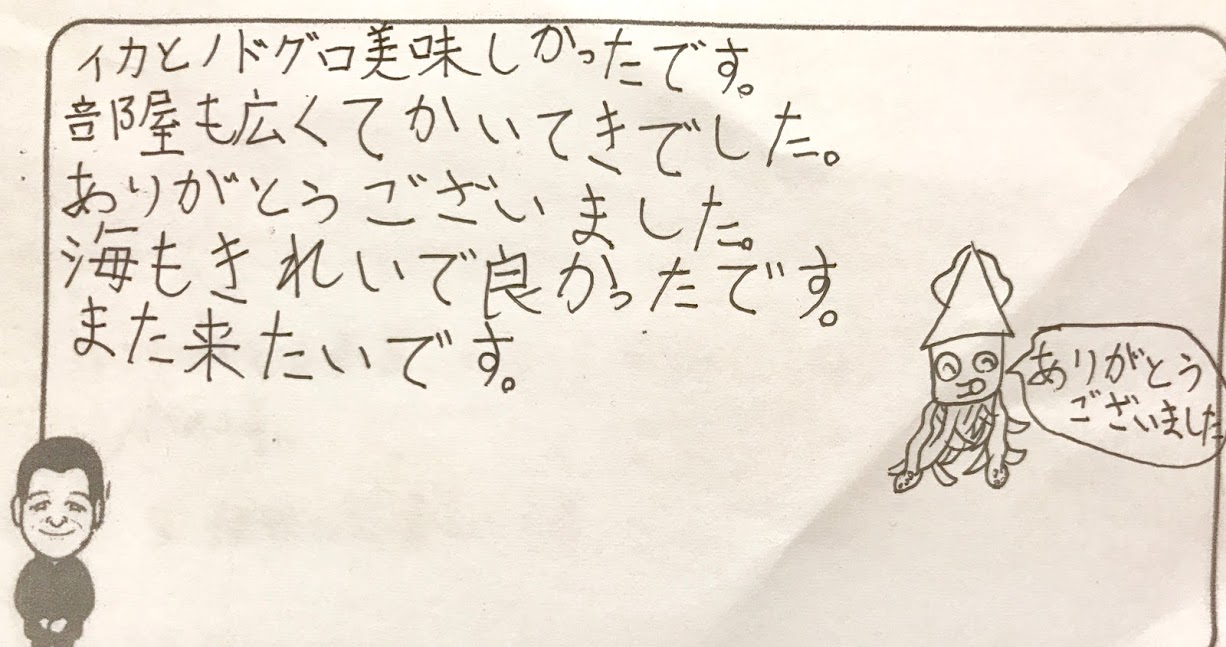 イカとノドグロ美味しかったです。
部屋も広くてかいてきでした。
ありがとうございました。
海もきれいで良かったです。
また来たいです。
ありがとう
ございました